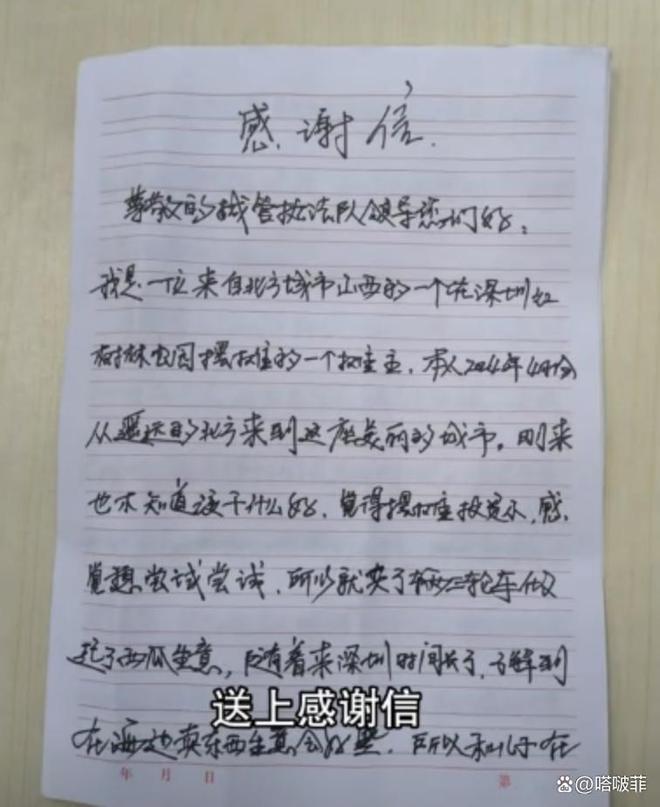 感谢信.
尊敬的城管执法队领导您们好：
我是一位来自北方城市山西的一个在深圳红
树林公园摆摊位的一个摊位主．本人2024年4月份
从遥远的北方来到这座美丽的城市。刚来
也不知道该干什么好．觉得摆摊位投资小，感
觉想尝试尝试．所以就买了辆三轮车做
起了西瓜生意，随着来深圳时间长了，了解到
送上感谢信
在海边卖东西生意会好些．所以和儿子在
年 月 日 第
百家号@嗒啵菲